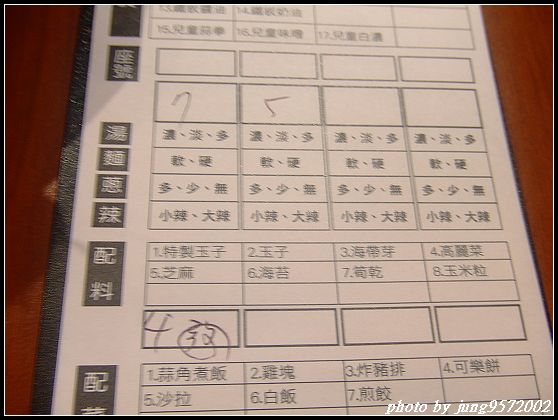 13.鐵嵌醬油 14.鐵嵌奶油
15.兒童蒜拳 16.兒童味噌 17.兒童白濃
座號
7 5
湯 濃、淡、多 濃、淡、多 濃、淡、多 濃、淡、多
麵 軟、硬 軟、硬 軟、硬 軟、硬
蔥 多、少、無 多、少、無 多、少、無 多、少、無
辣 小辣、大辣 小辣、大辣 小辣、大辣 小辣、大辣
配料
1.特製玉子 2.玉子 3.海帶芽 4.高麗菜
5.芝麻 6.海苔 7.筍乾 8.玉米粒
4
配菜
1.蒜角煮飯 2.雞塊 3.炸豬排 4.可樂餅
5.沙拉 6.白飯 7.煎餃
photo by jmng9572002